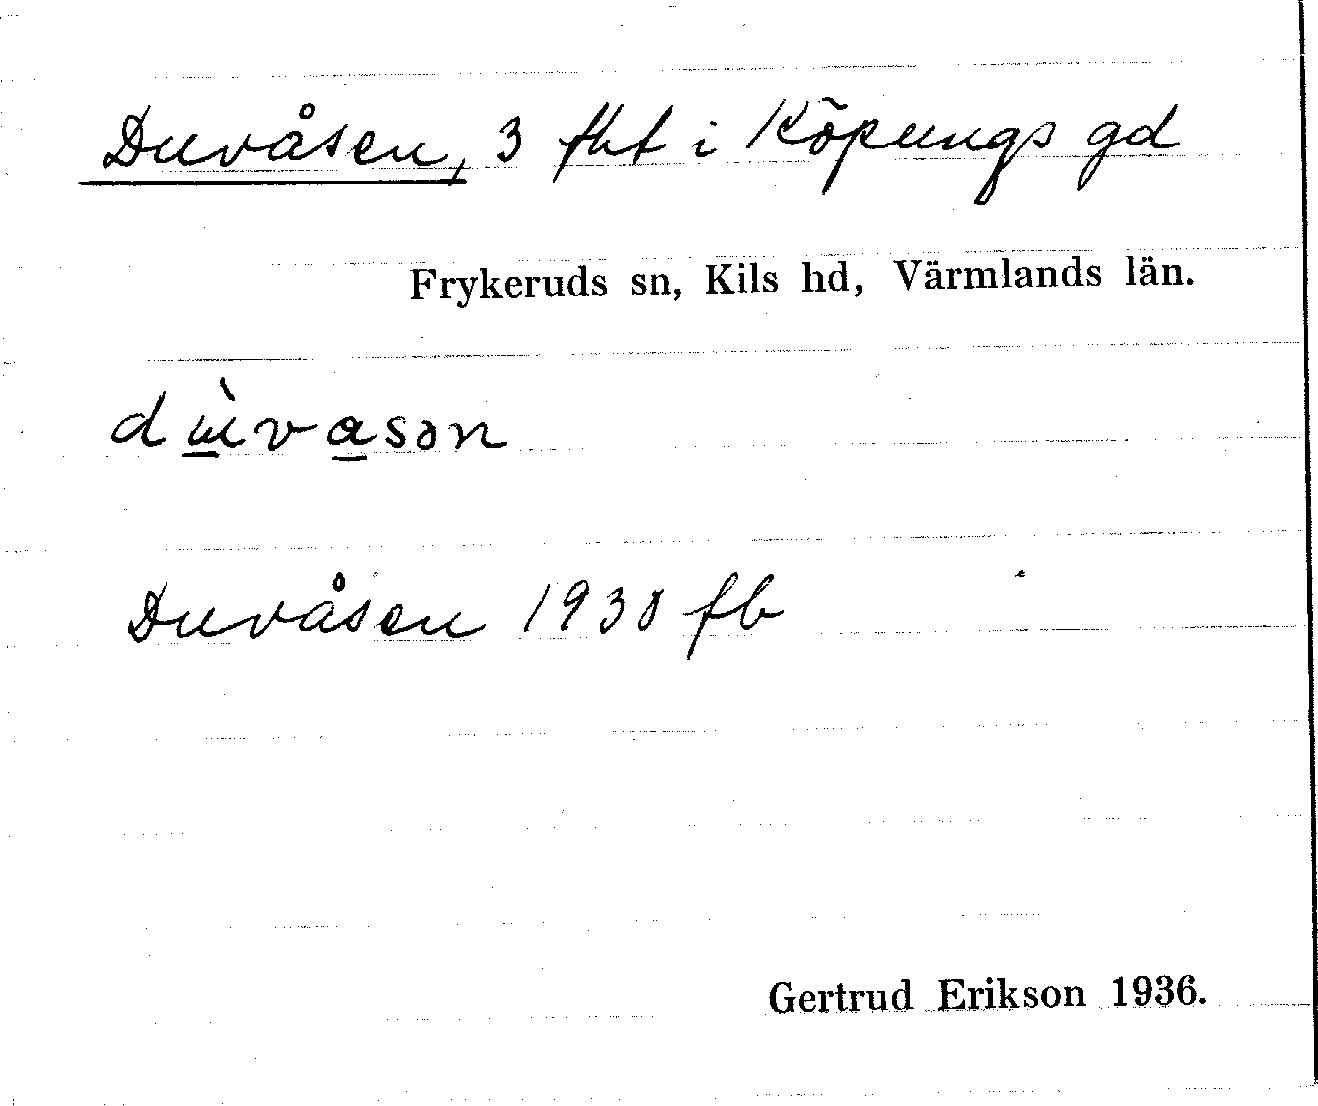 Duvåsen, 3 fht i Köpungs gd
Frykeruds sn, Kils hd, Värmlands län.
Duvåsen 1930 fb
Gertrud Erikson 1936.